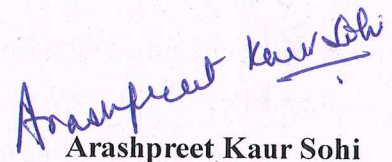 Arashpreet Kaur Sohi
Arashpreet Kaur Sohi